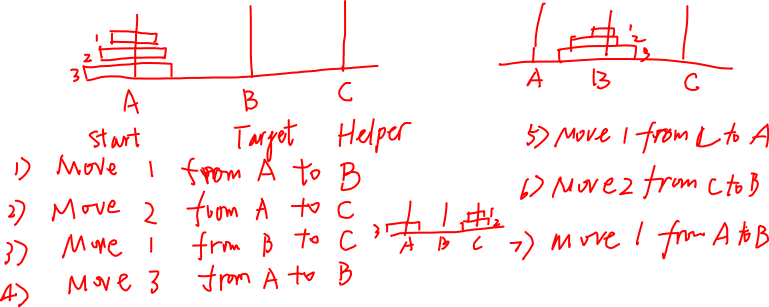 1
2
3
A B C
start Target Helper
1) Move 1 from A to B
2) Move 2 from A to C
3) Move 1 from B to C
4) Move 3 from A to B
3 1 2
A B C
1
2
3
A B C
5) Move 1 from C to A
6) Move 2 from C to B
7) Move 1 from A to B